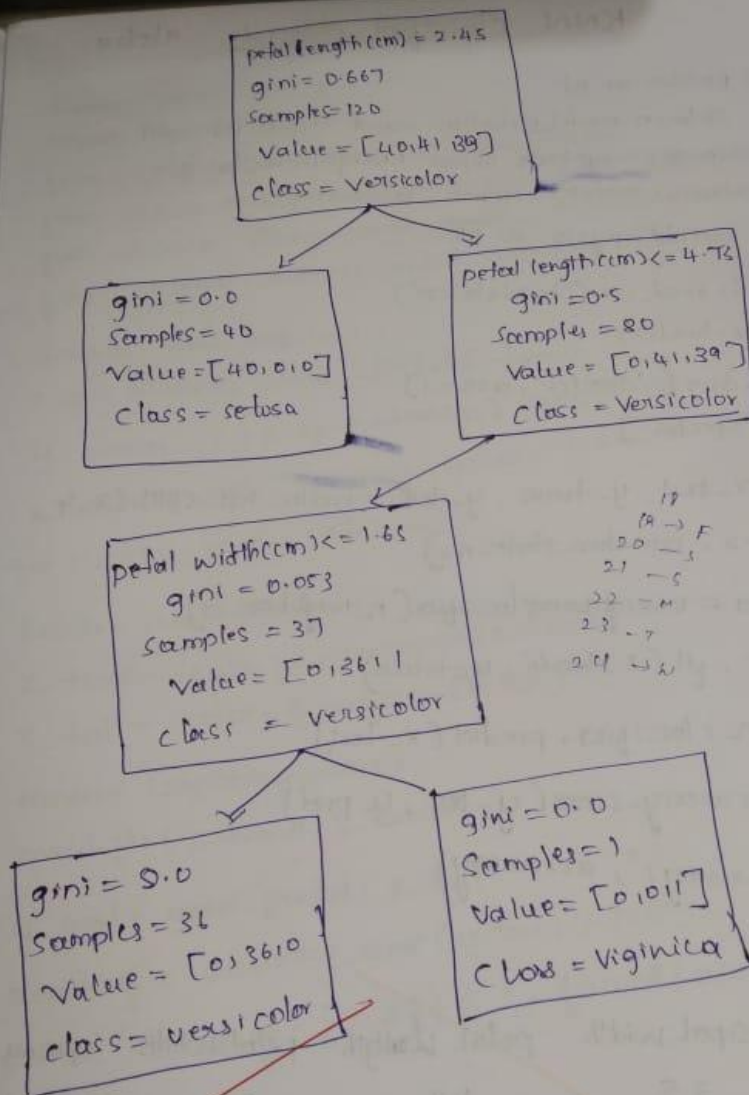 petal length (cm) = 2.45
gini = 0.667
samples = 120
value = [40,41 39]
class = versicolor
gini = 0.0
Samples = 40
value = [40,0,0]
Class = setosa
petal length (cm) <= 4.75
gini = 0.5
samples = 80
value = [0,41,39]
Class = versicolor
petal width (cm) <= 1.65
gini = 0.053
samples = 37
value = [0,36,1
class = versicolor
20
21 - S
22 - M
23 - T
24
gini = 0.0
samples = 36
value = [0,36,0]
class = versicolor
gini = 0.0
Samples = 1
value = [0,0,1]
Class = Viginica